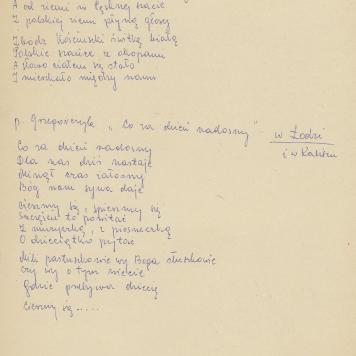 A od ziemi w tęsknej szacie
Z polskiej ziemi płyną głosy
Zboża Kościuszki świtkę białą
Polskie szańce z okopami
A słowo ciałem się stało
I mieszkało między nami
p. Grzegorczyk "Co za dzień radosny" w Łodzi
i w Kaliszu
Co za dzień radosny
Dla nas dziś nastaje
Minął czas żałosny
Bóg nam syna daje
Cieszmy się, spieszmy się
Szczęście to powitać
Z muzyczką, z pioseneczką
O dzieciątko pytać
Mili pastuszkowie wy Boga słuszkowie
Czy wy o tym wiecie
Gdzie przebywa dziecię
Cieszmy się.....